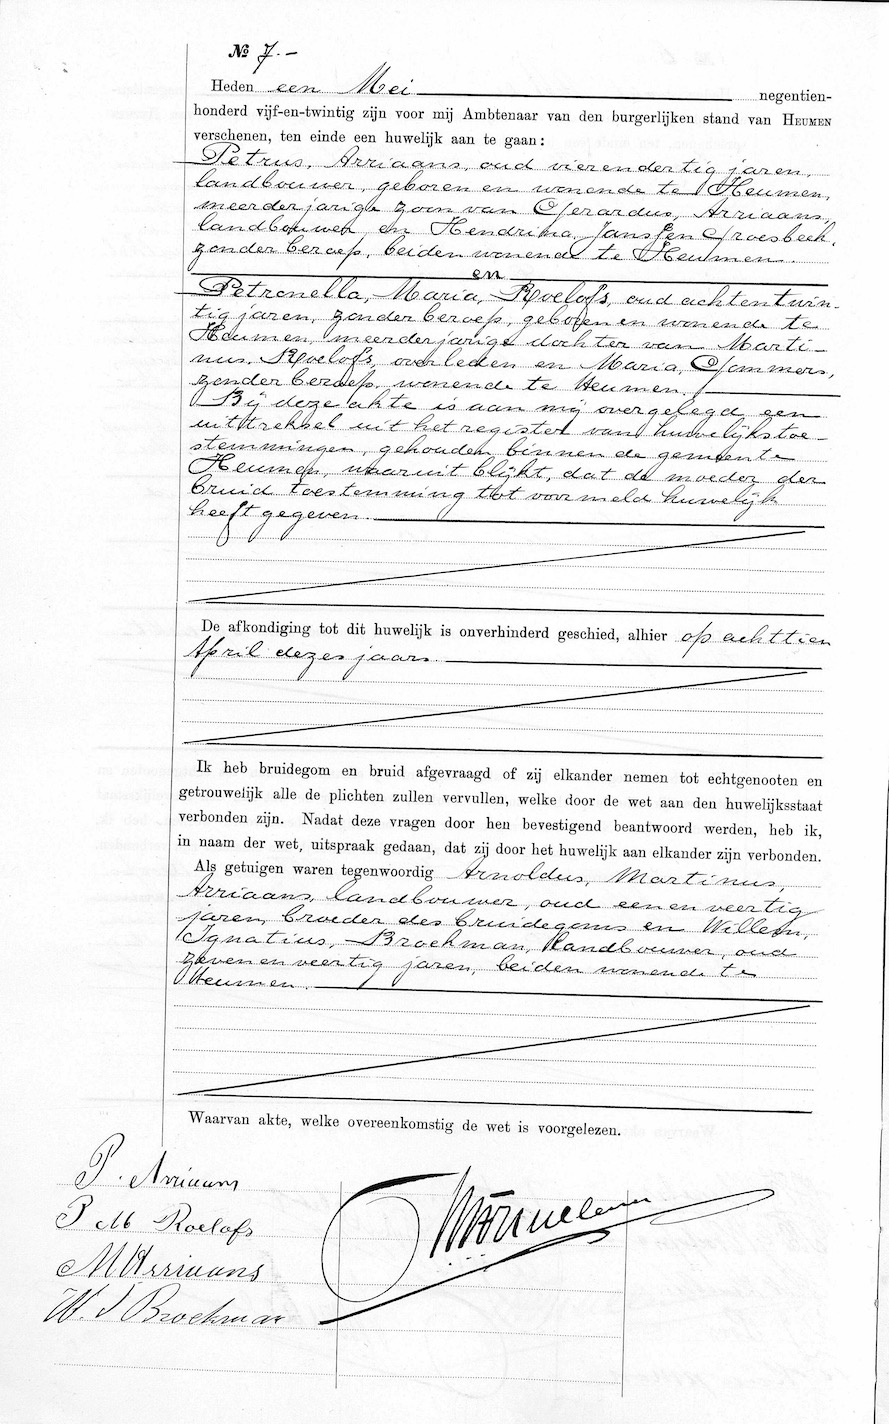 № 7.-
Heden een Mei negentien-
honderd vijf-en-twintig zijn voor mij Ambtenaar van den burgerlijken stand van HEUMEN
verschenen, ten einde een huwelijk aan te gaan:
Petrus, Arriaans, oud vierendertig jaren,
landbouwer, geboren en wonende te Heumen,
meerderjarige zoon van Gerardus, Arriaans,
landbouwer en Hendrina, Janssen Groesbeek,
zonder beroep, beiden wonende te Heumen.
en
Petronella, Maria, Roelofs, oud achtentwin-
tig jaren, zonder beroep, geboren en wonende te
Heumen, meerderjarige dochter van Marti-
nus, Roelofs, overleden en Maria, Jammers,
zonder beroep, wonende te Heumen.
Bij deze akte is aan mij overgelegd een
uittreksel uit het register van huwelijkstoe-
stemmingen, gehouden binnen de gemeente
Heumen, waaruit blijkt, dat de moeder der
bruid toestemming tot voormeld huwelijk
heeft gegeven.
De afkondiging tot dit huwelijk is onverhinderd geschied, alhier op achttien
April dezes jaars.
Ik heb bruidegom en bruid afgevraagd of zij elkander nemen tot echtgenooten en
getrouwelijk alle de plichten zullen vervullen, welke door de wet aan den huwelijksstaat
verbonden zijn. Nadat deze vragen door hen bevestigend beantwoord werden, heb ik,
in naam der wet, uitspraak gedaan, dat zij door het huwelijk aan elkander zijn verbonden.
Als getuigen waren tegenwoordig Arnoldus, Martinus,
Arriaans, landbouwer, oud eenenveertig
jaren, broeder des bruidegoms en Willem,
Ignatius, Broekman, landbouwer, oud
zevenenveertig jaren, beiden wonende te
Heumen.
Waarvan akte, welke overeenkomstig de wet is voorgelezen.
P. Arriaans
P M Roelofs
M Arriaans
W. I Broekman